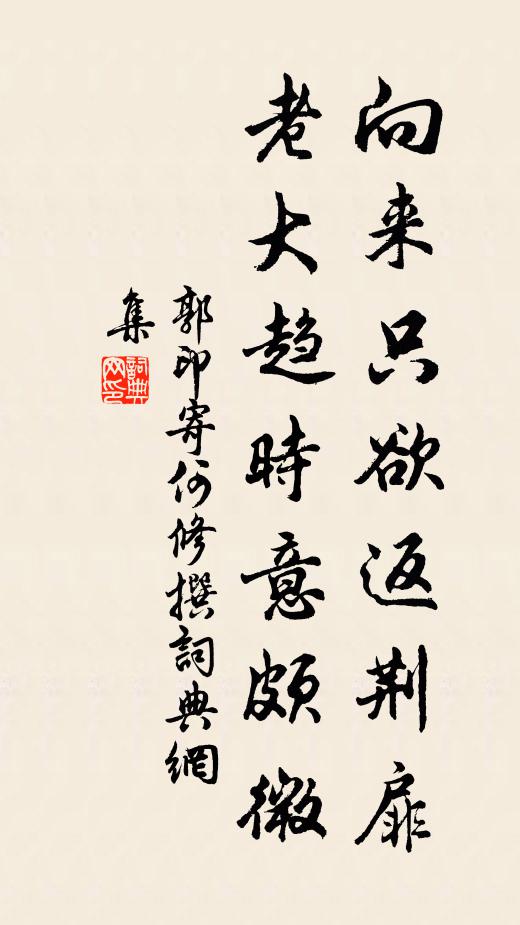 向来只欲返荆扉
老大趋時意頗微
郭印寄何修撰詞典網
集
詞典网印